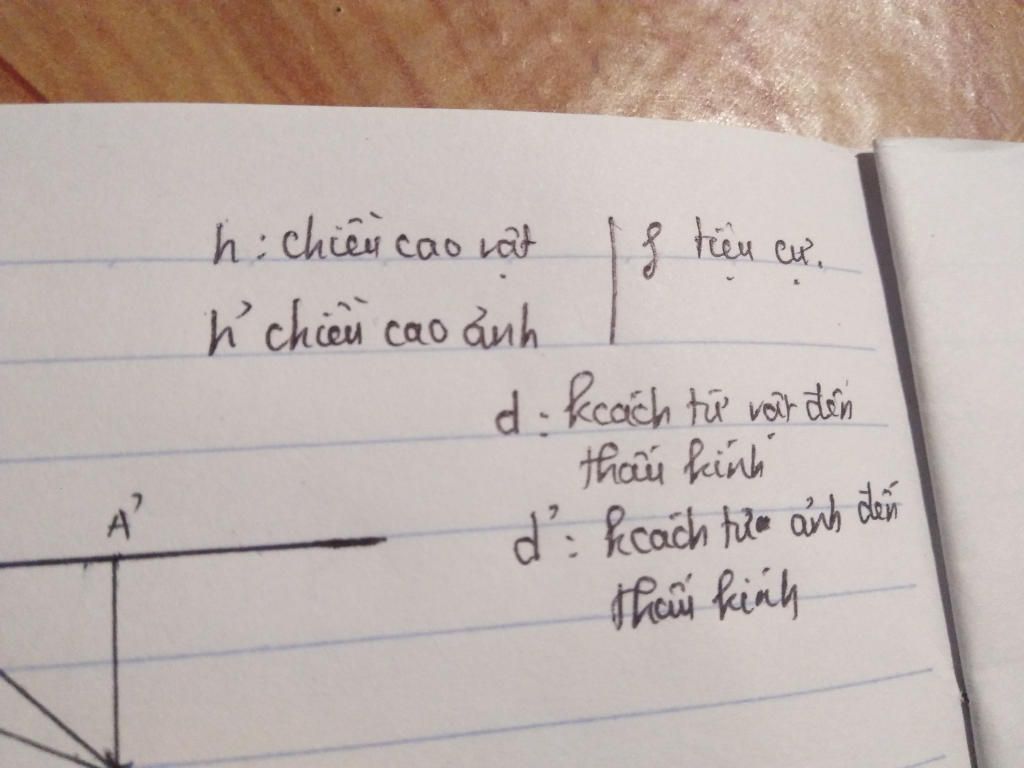 h : chiều cao vật | f tiêu cự.
h' chiều cao ảnh
d : kcách từ vật đến
thấu kính
A'
d' : kcách từ ảnh đến
thấu kính